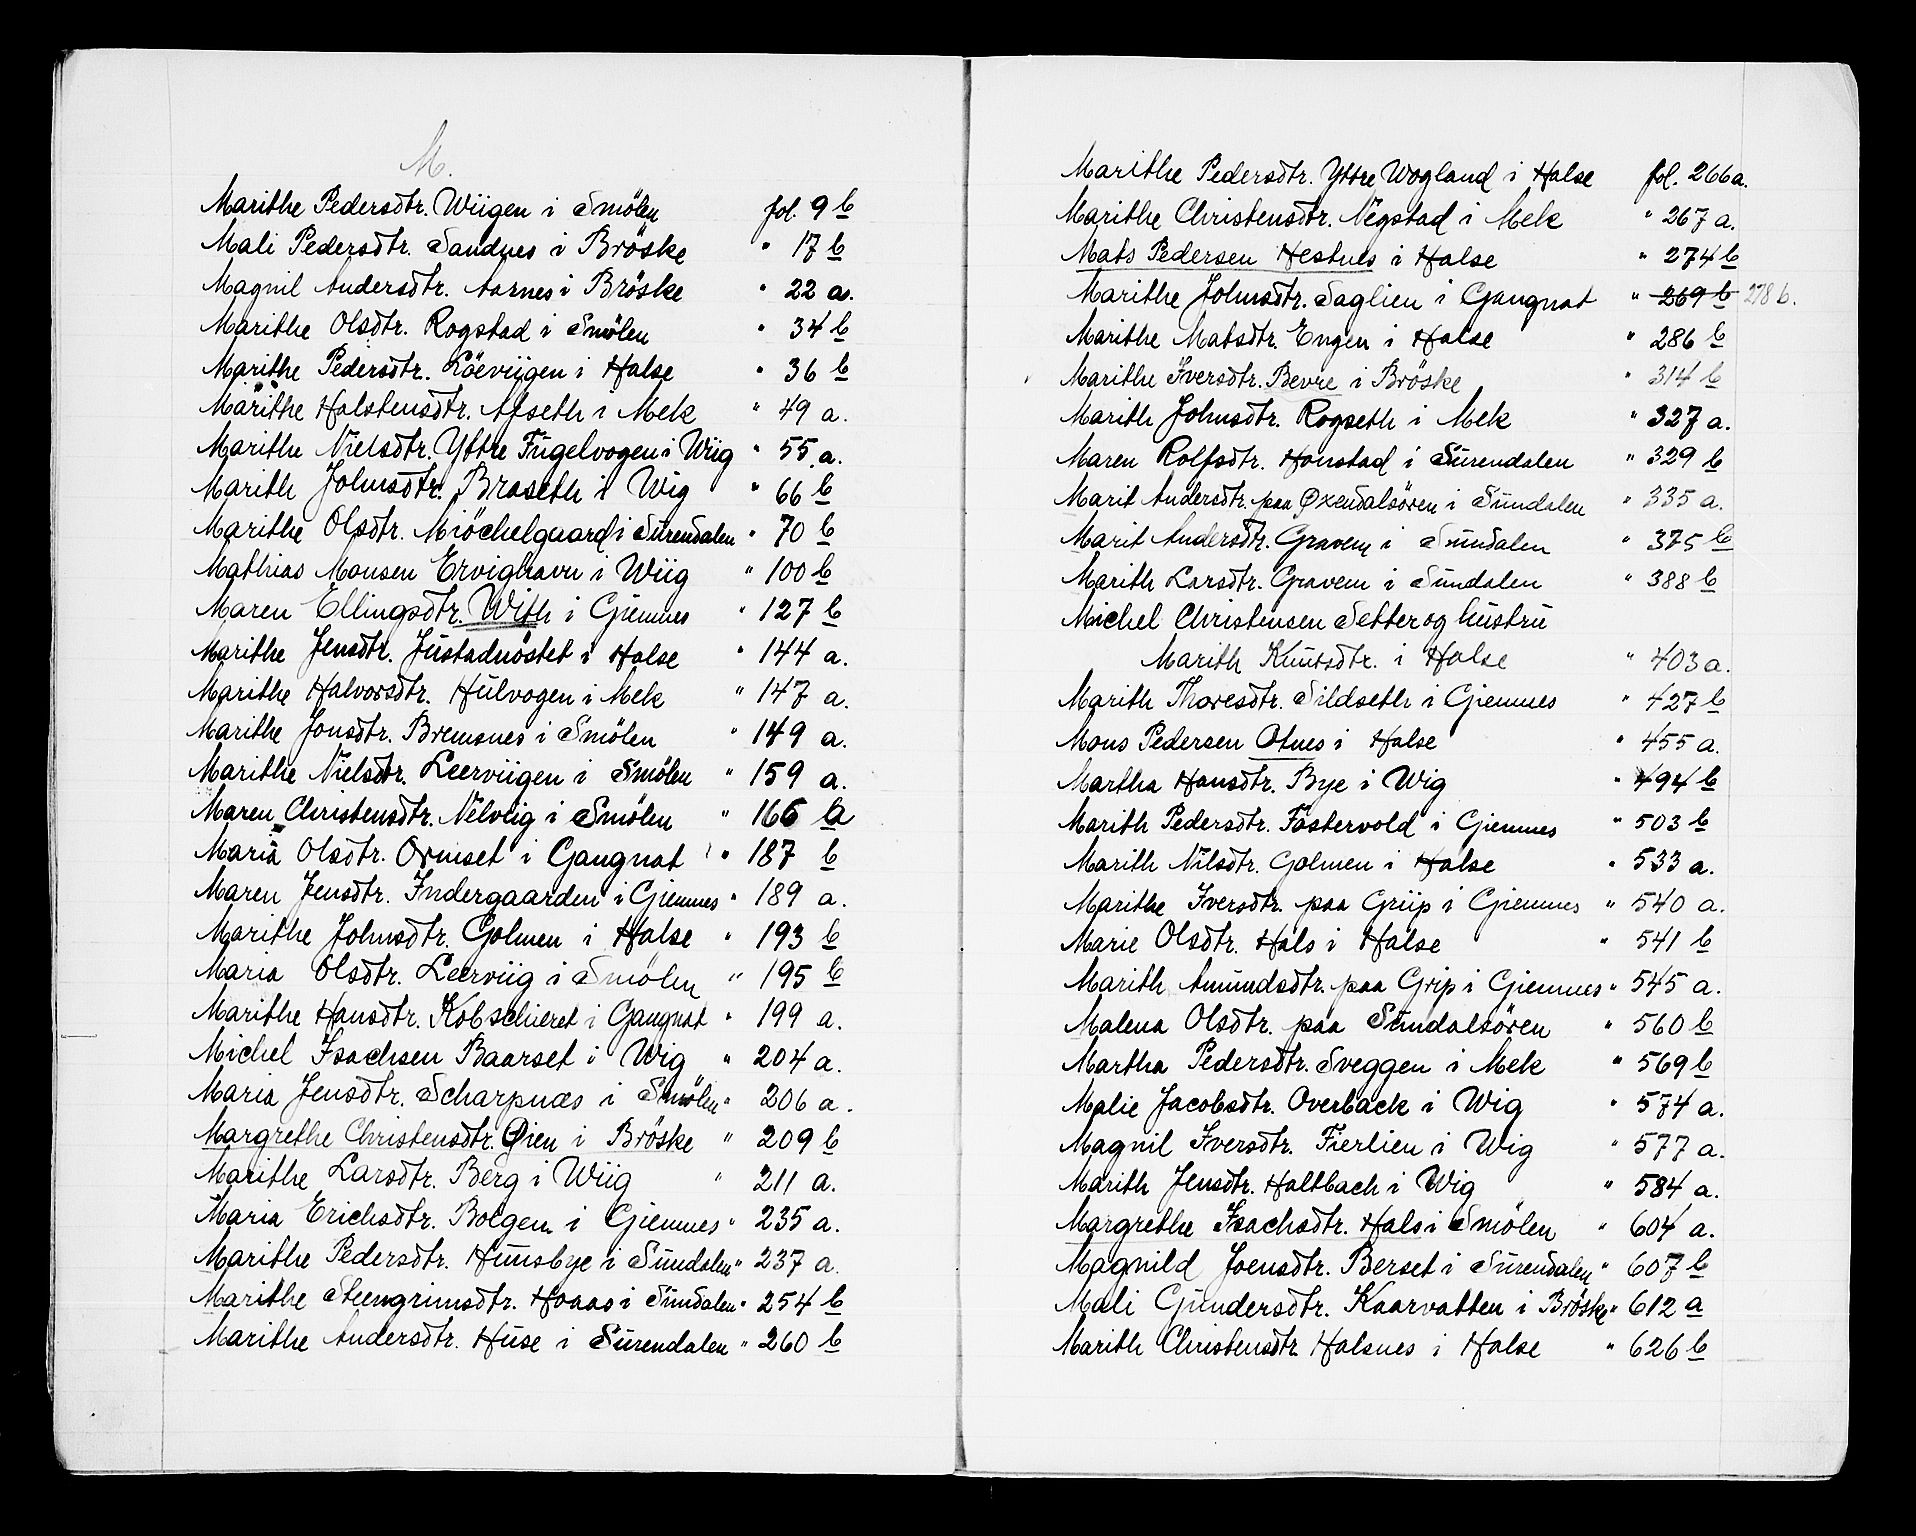 M.
Marithe Pedersdtr. Wiigen i Smölen fol. 9 b
Mali Pedersdtr. Sandnes i Bröske " 17 b
Magnil Andersdtr. Aarnes i Bröske " 22 a.
Marithe Olsdtr. Rogstad i Smölen " 34 b
Marithe Pedersdtr. Löeviigen i Halse " 36 b
Marithe Halstensdtr. Afseth i Mek " 49 a.
Marithe Nielsdtr. Yttre Fugelvogen i Wiig " 55 a.
Marith Johnsdtr. Braseth i Wig " 66 b
Marithe Olsdtr. Miöchelgaard i Surendalen " 70 b
Mathias Monsen Ervighavn i Wiig " 100 b
Maren Ellingsdtr. With i Giemnes " 127 b
Marithe Jensdtr. Justadnöstet i Halse " 144 a.
Marithe Halvorsdtr. Hulvogen i Mek " 147 a.
Marithe Jonsdtr. Bremsnes i Smölen " 149 a.
Marithe Nielsdtr. Leerviigen i Smölen " 159 a.
Maren Christensdtr. Nelvig i Smölen " 166 a
Maria Olsdtr. Ormset i Gangnat " 187 b
Maren Jensdtr. Indergaarden i Giemnes " 189 a.
Marithe Johnsdtr. Golmen i Halse " 193 b
Maria Olsdtr. Leerviig i Smölen " 195 b
Marithe Hansdtr. Kobschieret i Gangnat " 199 a.
Michel Isachsen Baarset i Wig " 204 a.
Maria Jensdtr. Scharpnæs i Smölen " 206 a.
Margrethe Christensdtr. Öien i Bröske " 209 b
Marithe Larsdtr. Berg i Wiig " 211 a.
Maria Erichsdtr. Bolgen i Giemnes " 235 a.
Marithe Pedersdtr. Hunsbye i Sundalen " 237 a.
Marithe Steengrimsdtr. Hoaas i Sundalen " 254 b
Marithe Andersdtr. Huse i Surendalen " 260 b
Marithe Pedersdtr. Yttre Wogland i Halse fol. 266 a.
Marithe Christensdtr. Negstad i Mek " 267 a.
Mats Pedersen Hestnes i Halse " 274 b
Marithe Johnsdtr. Saglien i Gangnat " 269 b 278 b.
Marithe Matsdtr. Engen i Halse " 286 b
Marithe Iversdtr. Bevre i Bröske " 314 b
Marith Johnsdtr. Rogseth i Mek " 327 a.
Maren Rolfsdtr. Honstad i Surendalen " 329 b
Marit Andersdtr. paa Öxendalsören i Sundalen " 335 a.
Marit Andersdtr. Gravem i Sundalen " 375 b
Marith Larsdtr. Gravem i Sundalen " 388 b
Michel Christensen Setter og hustru
Marith Knutsdtr. i Halse " 403 a.
Marith Thoresdtr. Sildseth i Giemnes " 427 b
Mons Pedersen Otnes i Halse " 455 a.
Martha Hansdtr. Bye i Wig " 494 b
Marith Pedersdtr. Fostervold i Giemnes " 503 b
Marith Nilsdtr. Golmen i Halse " 533 a.
Marithe Iversdtr. paa Griip i Giemnes " 540 a.
Marie Olsdtr. Hals i Halse " 541 b
Marith Amundsdtr. paa Grip i Giemnes " 545 a.
Malena Olsdtr. paa Sundalsören " 560 b
Martha Pedersdtr. Sveggen i Mek " 569 b
Malie Jacobsdtr. Overback i Wig " 574 a.
Magnil Iversdtr. Fierlien i Wig " 577 a.
Marith Jensdtr. Holtbach i Wig " 584 a.
Margrethe Isachsdtr. Hals i Smölen " 604 a.
Magnild Joensdtr. Berset i Surendalen " 607 b
Mali Gundersdtr. Kaarvatten i Bröske " 612 a
Marith Christensdtr. Halsnes i Halse " 626 b